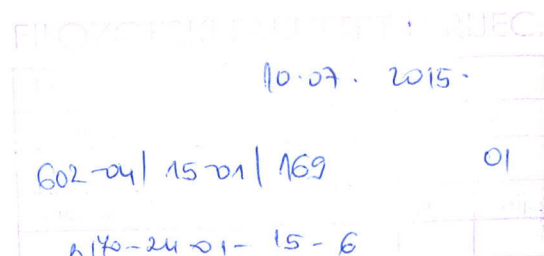 10.07. 2015.
602-04/15-01/169 01
2170-24-01-15-6